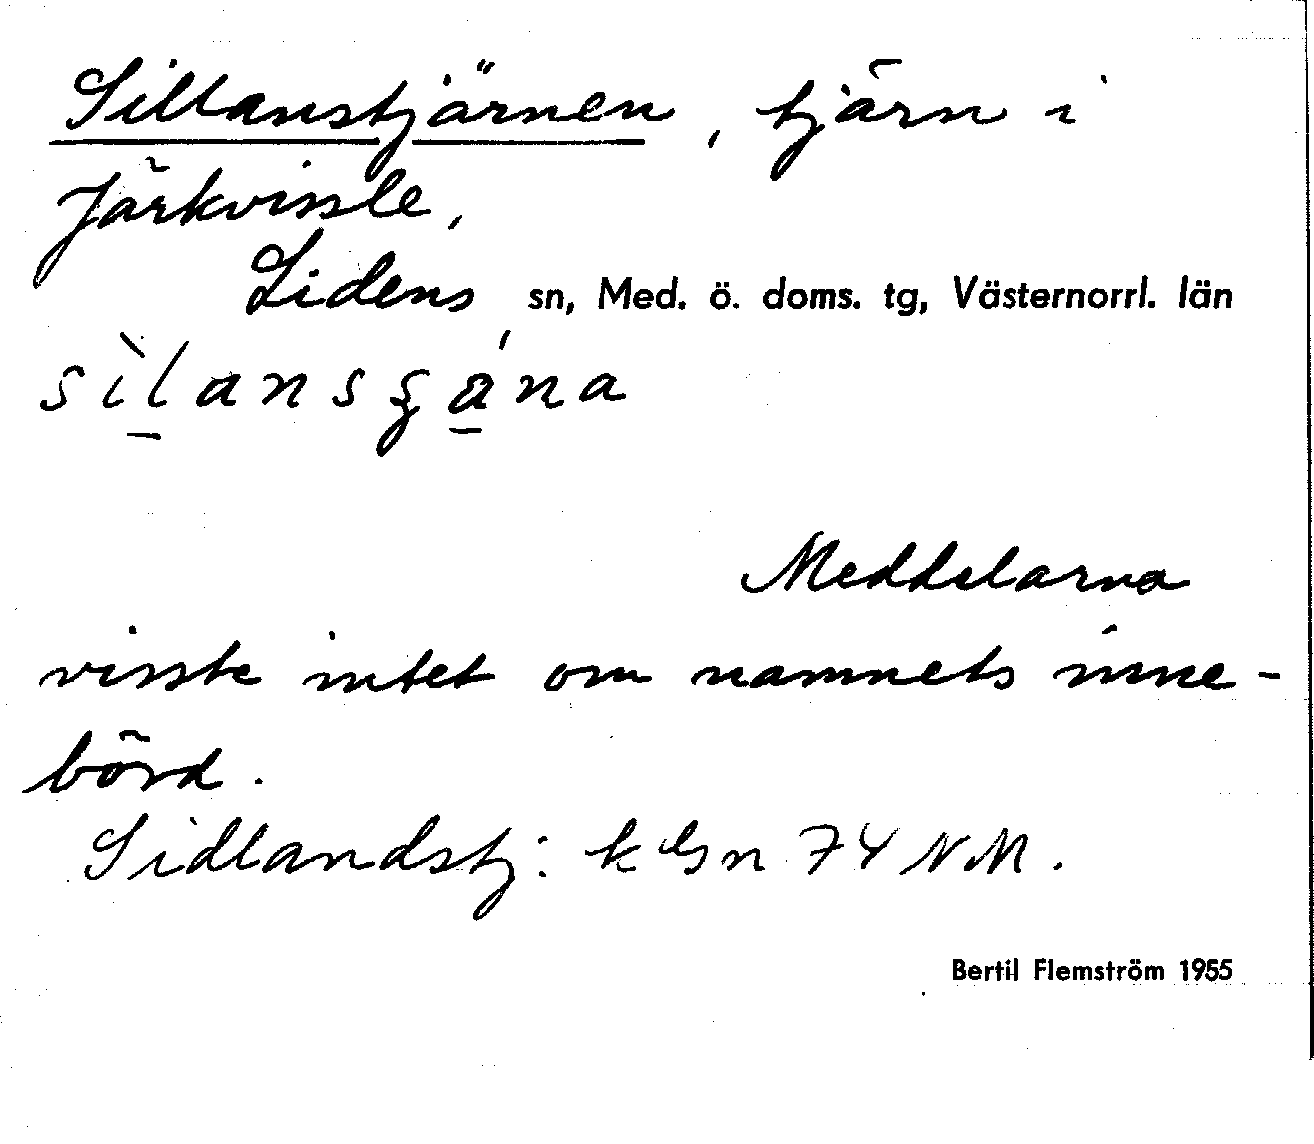 Sillanstjärnen, tjärn i
Järkvissle,
Lidens sn, Med. ö. doms. tg, Västernorrl. län
Meddelarna
visste intet om namnets inne-
börd.
Sidlandstj: k Gn 74 NM.
Bertil Flemström 1955